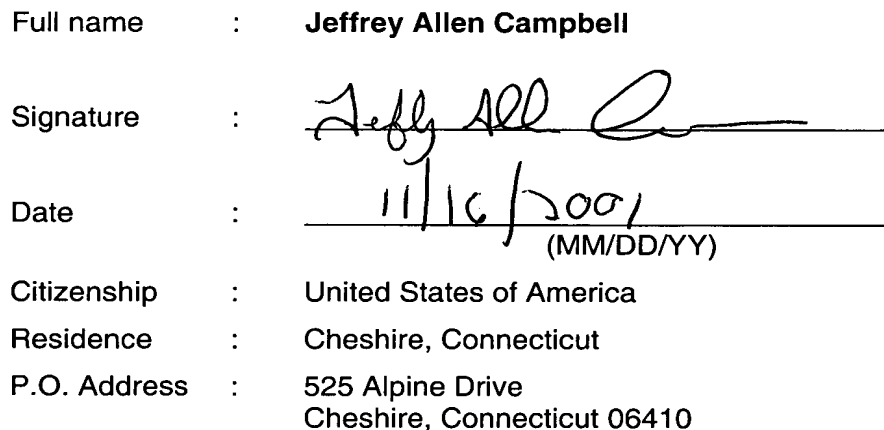 Full name : Jeffrey Allen Campbell
Signature : Jeffy All
Date : 11/16/2001
(MM/DD/YY)
Citizenship : United States of America
Residence : Cheshire, Connecticut
P.O. Address : 525 Alpine Drive
Cheshire, Connecticut 06410